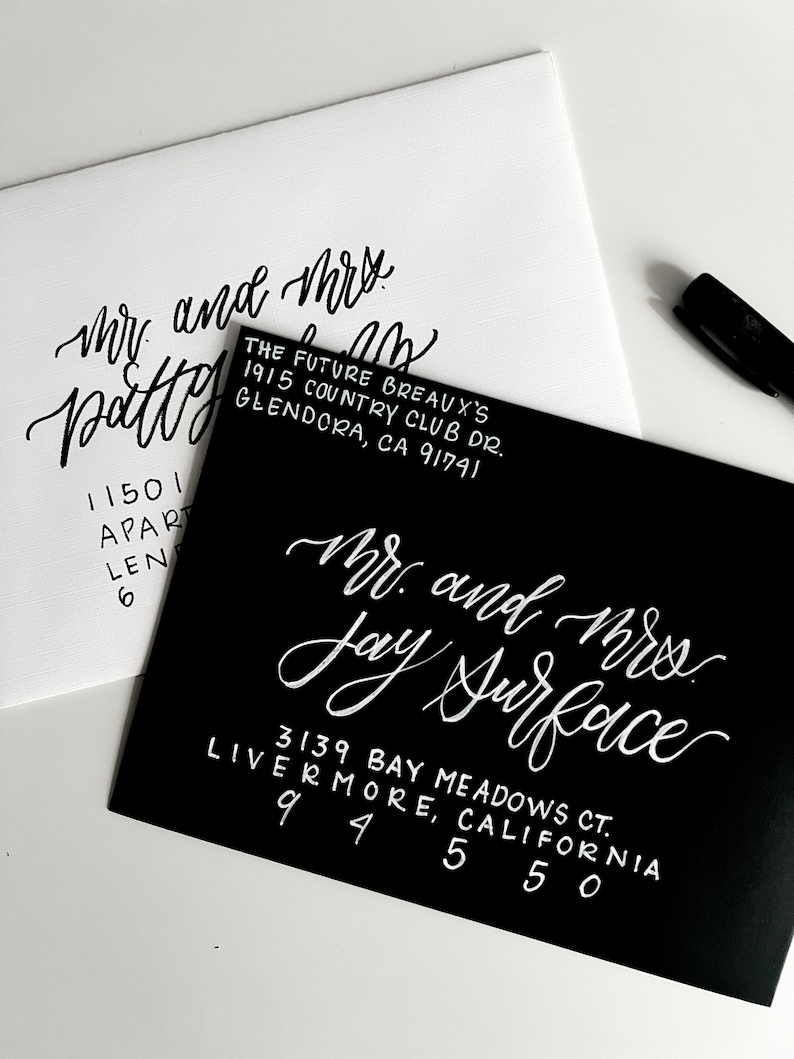 mr. and mrs.
patty
11501
APART
LEN
6
THE FUTURE BREAUX'S
1915 COUNTRY CLUB DR.
GLENDORA, CA 91741
mr. and mrs.
jay surface
3139 BAY MEADOWS CT.
LIVERMORE, CALIFORNIA
9 4 5 5 0